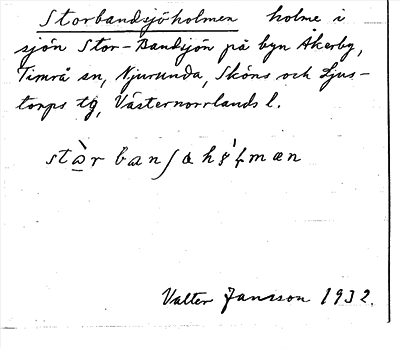 Storbandsjöholmen holme i
sjön Stor-Bandsjön på byn Åkerby,
Timrå sn, Njurunda, Sköns och Ljus-
torps tg, Västernorrlands l.
Valter Jansson 1932.